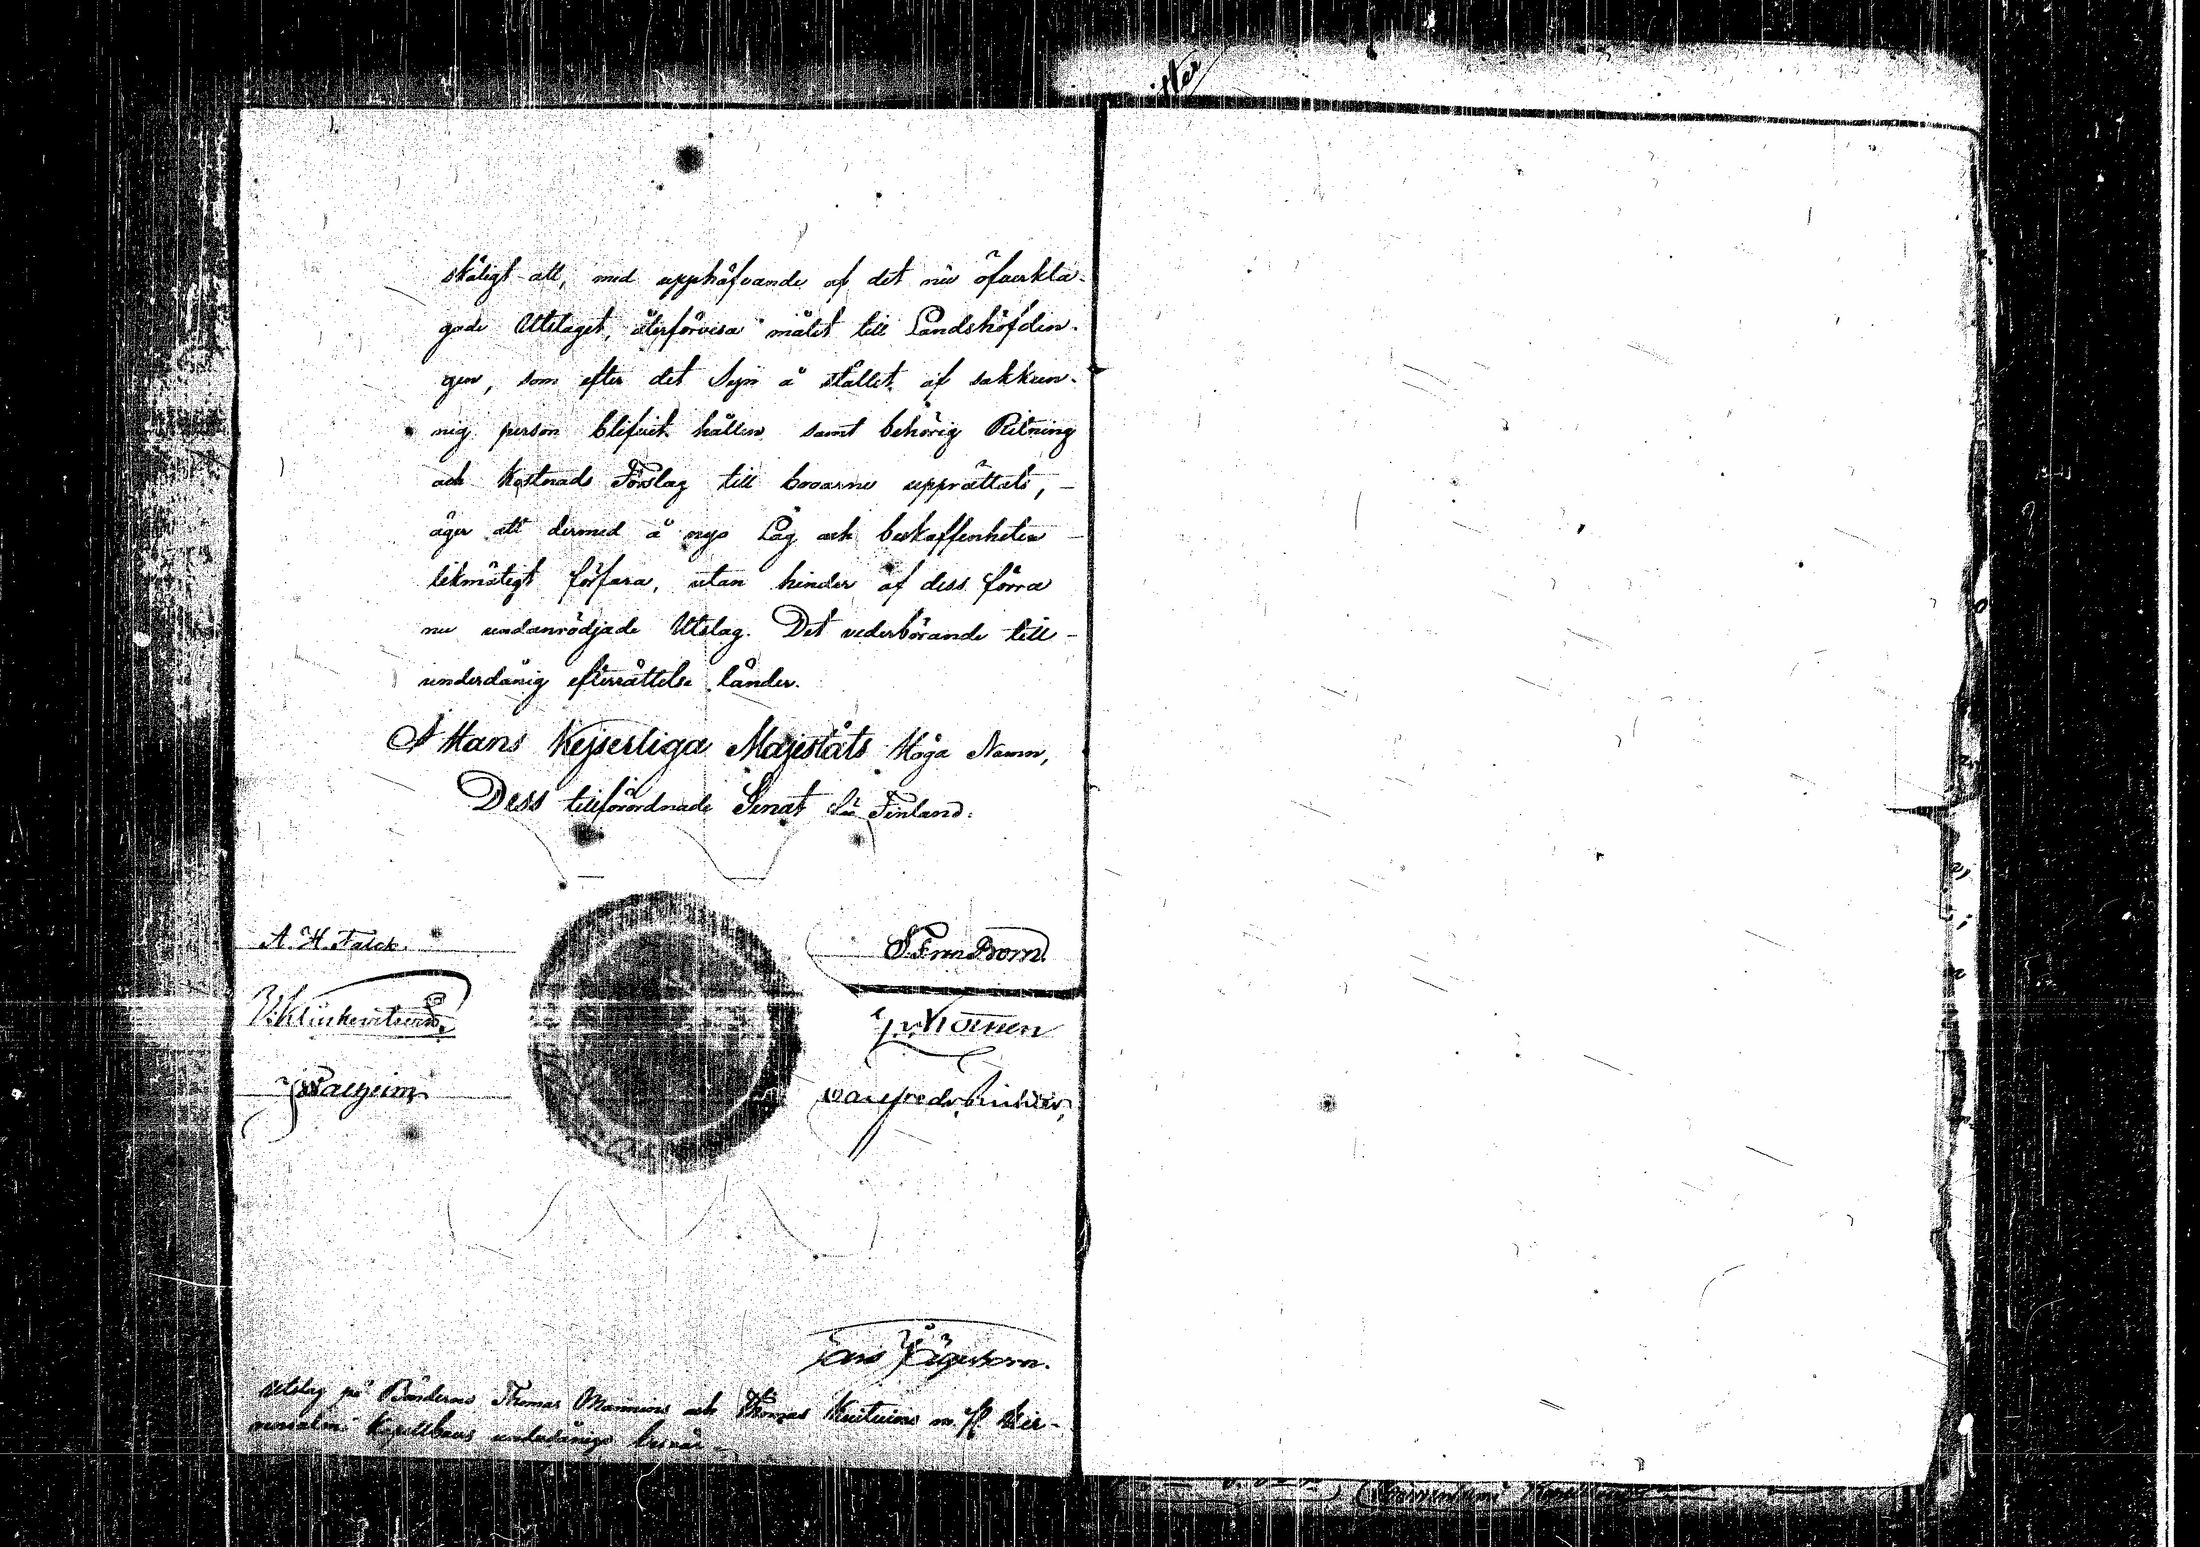 skäligt att, med upphäfvande af det nu öfverkla-
gade Utslaget, återförvisa målet till Landshöfdin-
gen, som efter det Syn å stället af sakkun-
nig person blifvit hållen samt behörig Ritning
och Kostnads Förslag till broarne upprättats, -
äger att dermed å nyo Lag och beskaffenheten
likmätigt förfara, utan hinder af dess förra
nu undanrödjade Utslag. Det vederbörande till -
underdånig efterrättelse länder.
I Hans Kejserliga Majestäts Höga Namn,
Dess tillförordnade Senat för Finland.
A. H. Falck
Born
J Walheim
Jägerhorn.
Utslag på Bönderne Thomas Manninens och Thomas m. fl.
Kapellboers underdåniga besvär -